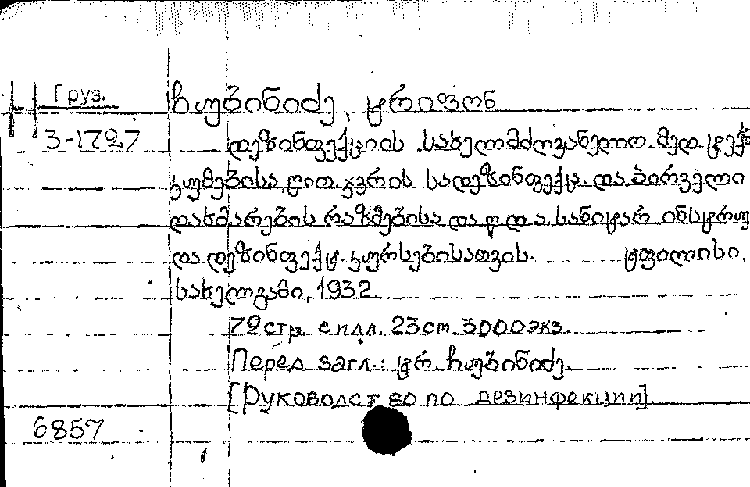 Груз.
ჩუბინიძე, ტრიფონ
3-1727
დეზინფექციის სახელმძღვანელო მედ ტექ
კუმებისა, წით. ჯვრის სადეზინფექც. და პირველი
დახმარების რაზმებისა და სანიტარ ინსტრუ
და დეზინფექტ. კურსებისათვის. ტფილისი,
სახელგამი, 1932
72 стр. с илл. 23 cm. 3000 экз.
Перед загл.: ტრ. ჩუბინიძე.
[Руководство по дезинфекции]
6857
1